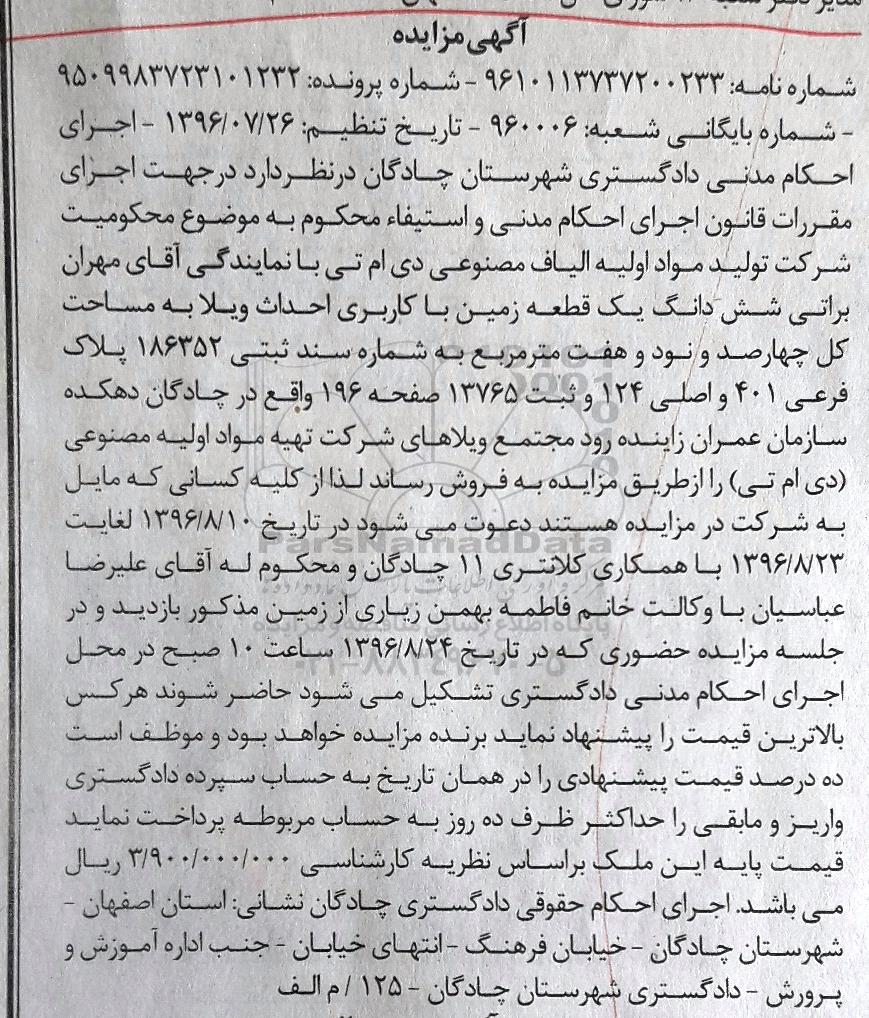 آگهی مزایده
شماره نامه: ۹۶۱۰۱۱۳۷۳۷۲۰۰۲۳۳ - شماره پرونده: ۹۵۰۹۹۸۳۷۲۳۱۰۱۲۳۲
- شماره بایگانی شعبه: ۹۶۰۰۰۶ - تاریخ تنظیم: ۱۳۹۶/۰۷/۲۶ - اجرای
احکام مدنی دادگستری شهرستان چادگان درنظردارد درجهت اجرای
مقررات قانون اجرای احکام مدنی و استیفاء محکوم به موضوع محکومیت
شرکت تولید مواد اولیه الیاف مصنوعی دی ام تی با نمایندگی آقای مهران
براتی شش دانگ یک قطعه زمین با کاربری احداث ویلا به مساحت
کل چهارصد و نود و هفت مترمربع به شماره سند ثبتی ۱۸۶۳۵۲ پلاک
فرعی ۴۰۱ و اصلی ۱۲۴ و ثبت ۱۳۷۶۵ صفحه ۱۹۶ واقع در چادگان دهکده
سازمان عمران زاینده رود مجتمع ویلاهای شرکت تهیه مواد اولیه مصنوعی
(دی ام تی) را ازطریق مزایده به فروش رساند لذا از کلیه کسانی که مایل
به شرکت در مزایده هستند دعوت می شود در تاریخ ۱۳۹۶/۸/۱۰ لغایت
۱۳۹۶/۸/۲۳ با همکاری کلانتری ۱۱ چادگان و محکوم له آقای علیرضا
عباسیان با وکالت خانم فاطمه بهمن زیاری از زمین مذکور بازدید و در
جلسه مزایده حضوری که در تاریخ ۱۳۹۶/۸/۲۴ ساعت ۱۰ صبح در محل
اجرای احکام مدنی دادگستری تشکیل می شود حاضر شوند هرکس
بالاترین قیمت را پیشنهاد نماید برنده مزایده خواهد بود و موظف است
ده درصد قیمت پیشنهادی را در همان تاریخ به حساب سپرده دادگستری
واریز و مابقی را حداکثر ظرف ده روز به حساب مربوطه پرداخت نماید
قیمت پایه این ملک براساس نظریه کارشناسی ۳/۹۰۰/۰۰۰/۰۰۰ ریال
می باشد. اجرای احکام حقوقی دادگستری چادگان نشانی: استان اصفهان -
شهرستان چادگان - خیابان فرهنگ - انتهای خیابان - جنب اداره آموزش و
پرورش - دادگستری شهرستان چادگان - ۱۲۵ / م الف
ParsNamadData